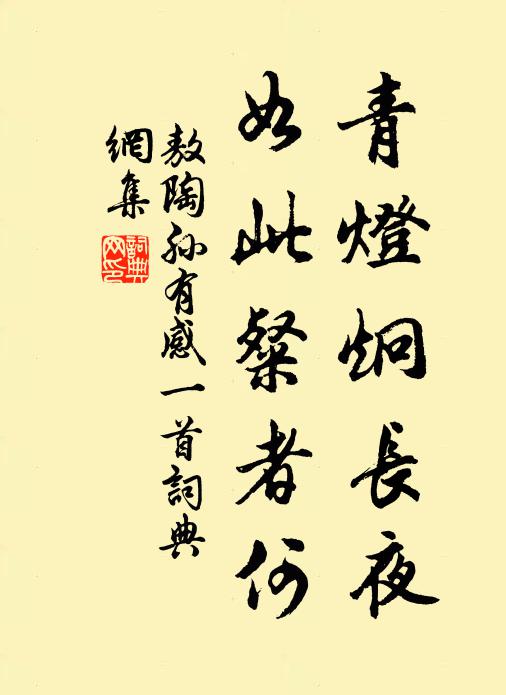 青燈炯長夜
如此粲者何
敖陶孙有感一首詞典
網集
詞典
网印